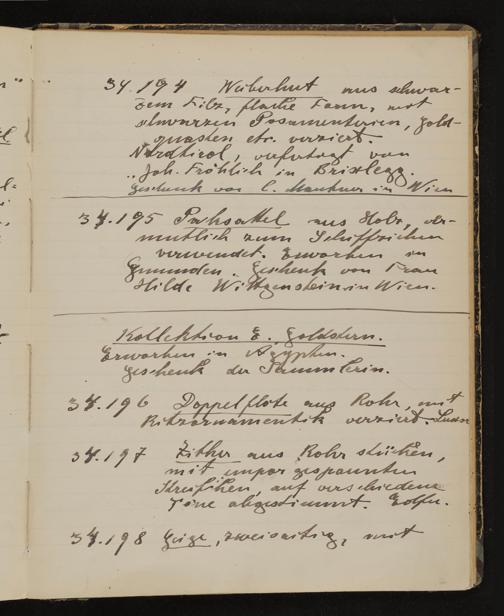 34.194 Weiberhut aus schwar-
zem Filz, flache Form, mit
schwarzen Posamenterien, Gold-
quasten etc. verziert.
Nordtirol, verfertigt von
"Joh. Fröhlich in Brixlegg.
Geschenk von C. Mautner in Wien
34.195 Packsattel aus Holz, ver-
mutlich zum Schiffziehen
verwendet. Erworben in
Gmunden. Geschenk von Frau
Hilde Wittgenstein in Wien.
Kollektion E. Goldstern.
Erworben in Ägypten.
Geschenk der Sammlerin.
34.196 Doppelflöte aus Rohr, mit
Ritzornamentik verziert.
34.197 Zither aus Rohrstücken,
mit gespannten
auf verschiedene
Töne abgestimmt.
34.198 Geige, zweisaitig, mit